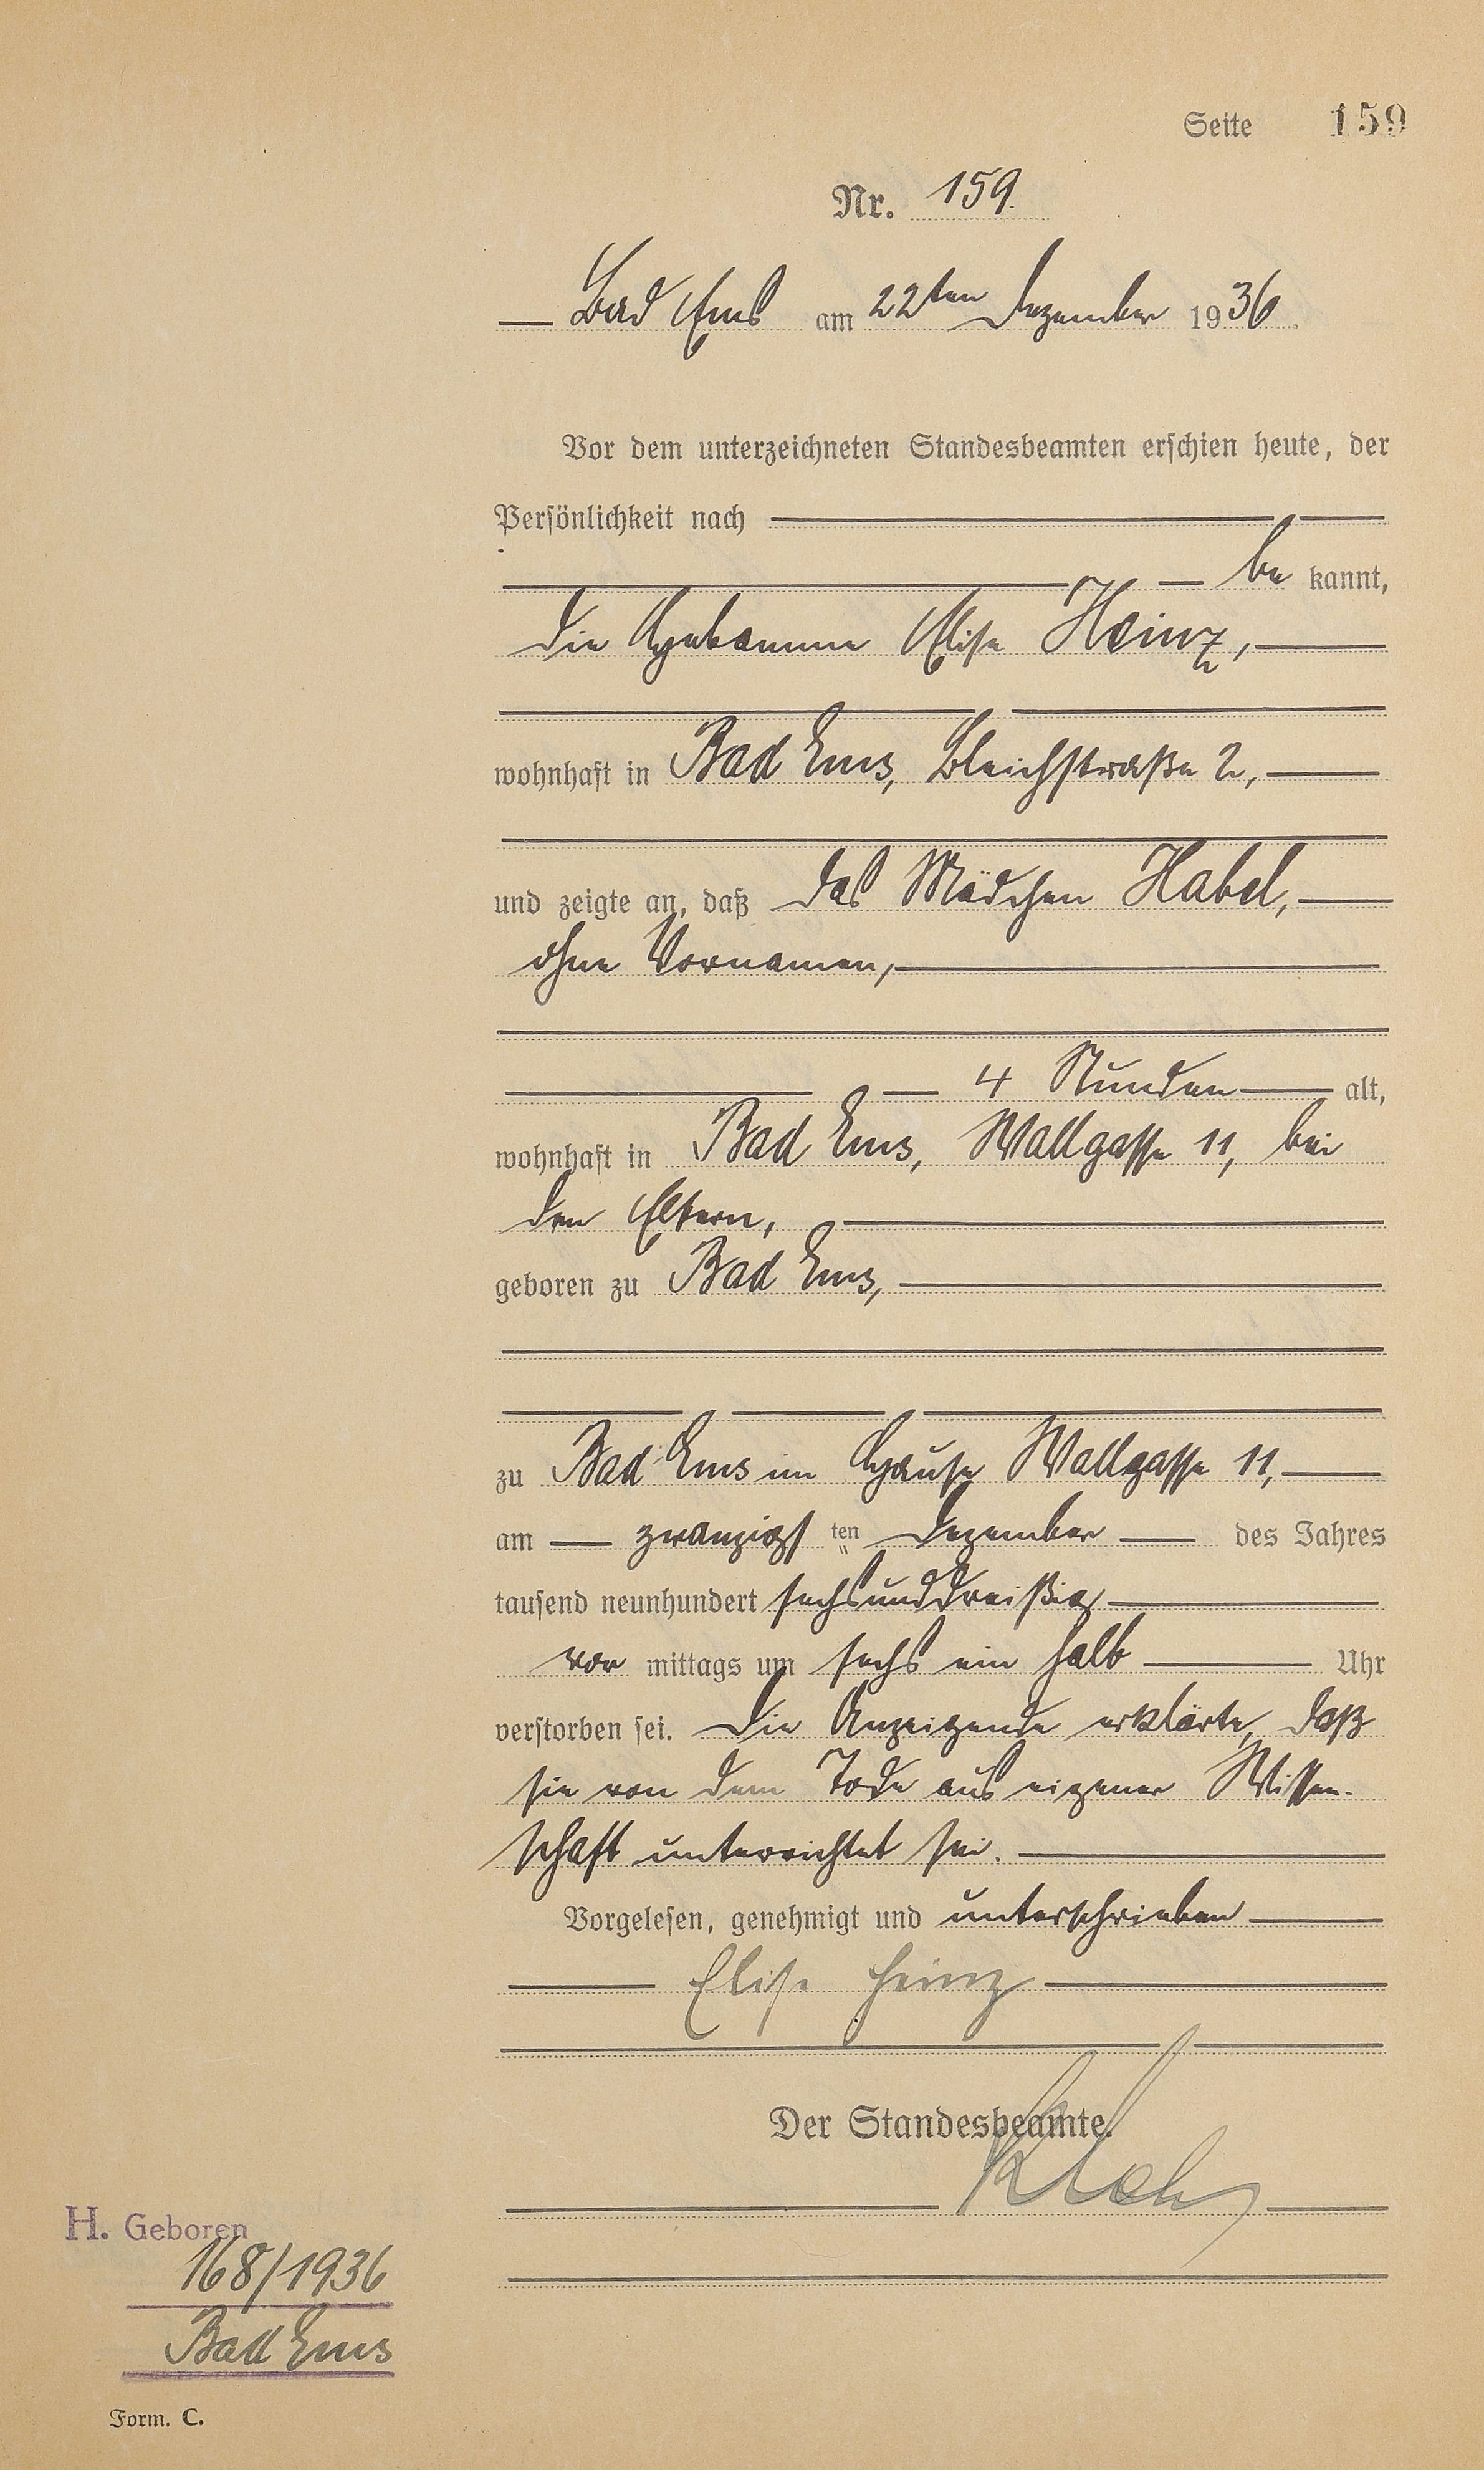 Seite 159
Nr. 159.
Bad Ems am 22ten Dezember 1936.
Vor dem unterzeichneten Standesbeamten erschien heute, der
Persönlichkeit nach
be kannt,
die Hebamme Elise Heinz,
wohnhaft in Bad Ems, Bleichstraße 2,
und zeigte an, daß das Mädchen Habel,
ohne Vornamen,
4 Stunden alt,
wohnhaft in Bad Ems, Wallgasse 11, bei
den Eltern,
geboren zu Bad Ems,
zu Bad Ems im Hause Wallgasse 11,
am zwanzigsten Dezember des Jahres
tausend neunhundert sechsunddreißig
vor mittags um sechs ein halb Uhr
verstorben sei. Die Anzeigende erklärte, daß
sie von dem Tode aus eigener Wissen-
schaft unterrichtet sei.
Vorgelesen, genehmigt und unterschrieben
Elise Heinz
Der Standesbeamte.
H. Geboren
168/1936
Bad Ems
Form. C.